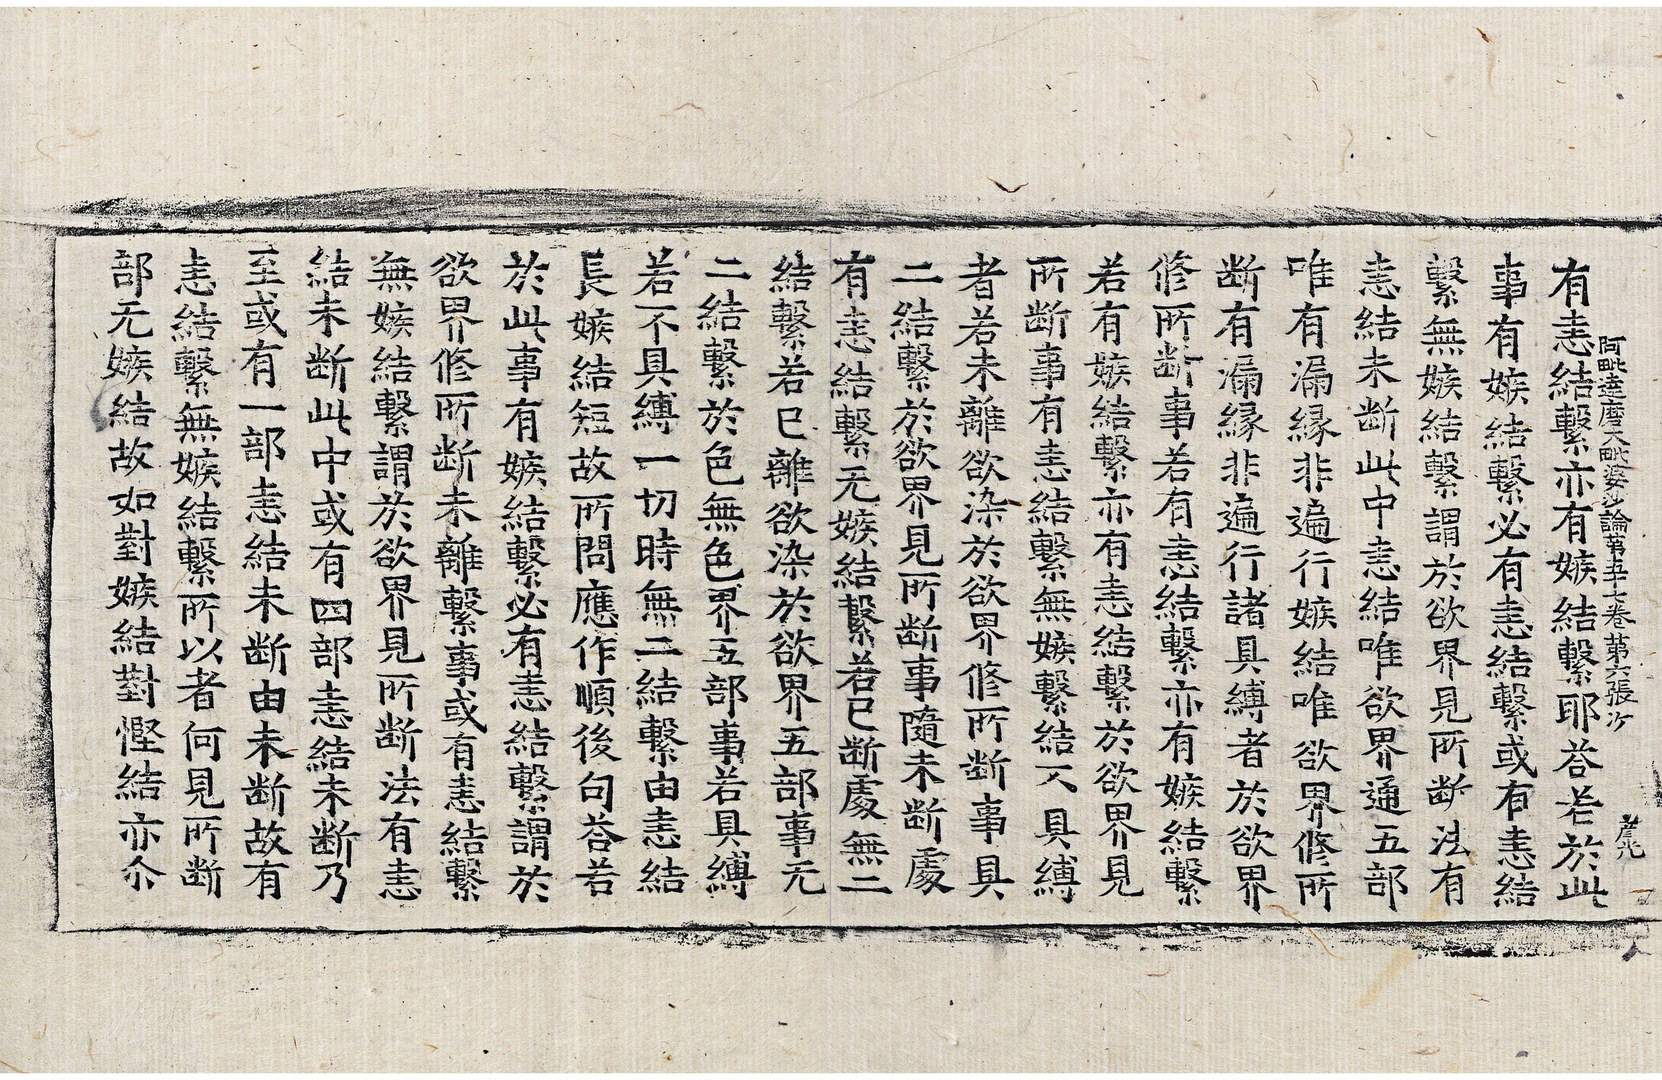 阿毗達磨大毗婆沙論第五十七卷第六張 沙
有恚結繫亦有嫉結繫耶荅若於此
事有嫉結繫必有恚結繫或有恚結
繫無嫉結繫謂於欲界見所断法有
恚結未断此中恚結唯欲界通五部
唯有漏縁非遍行嫉結唯欲界修所
断有漏縁非遍行諸具縛者於欲界
修所断事若有恚結繫亦有嫉結繫
若有嫉結繫亦有恚結繫於欲界見
所断事有恚結繫無嫉繫結不具縛
者若未離欲染於欲界修所断事具
二結繫於欲界見所断事隨未断處
有恚結繫无嫉結繫若已断處無二
結繫若已離欲染於欲界五部事无
二結繫於色無色界五部事若具縛
若不具縛一切時無二結繫由恚結
長嫉結短故所問應作順後句荅若
於此事有嫉結繫必有恚結繫謂於
欲界修所断未離繫事或有恚結繫
無嫉結繫謂於欲界見所断法有恚
結未断此中或有四部恚結未断乃
至或有一部恚結未断由未断故有
恚結繫無嫉結繫所以者何見所断
部无嫉結故如對嫉結對慳結亦尒